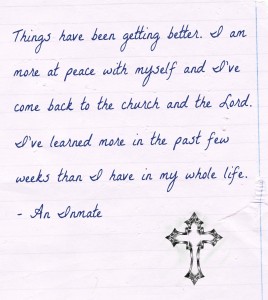 Things have been getting better. I am
more at peace with myself and I've
come back to the church and the Lord.
I've learned more in the past few
weeks than I have in my whole life.
- An Inmate